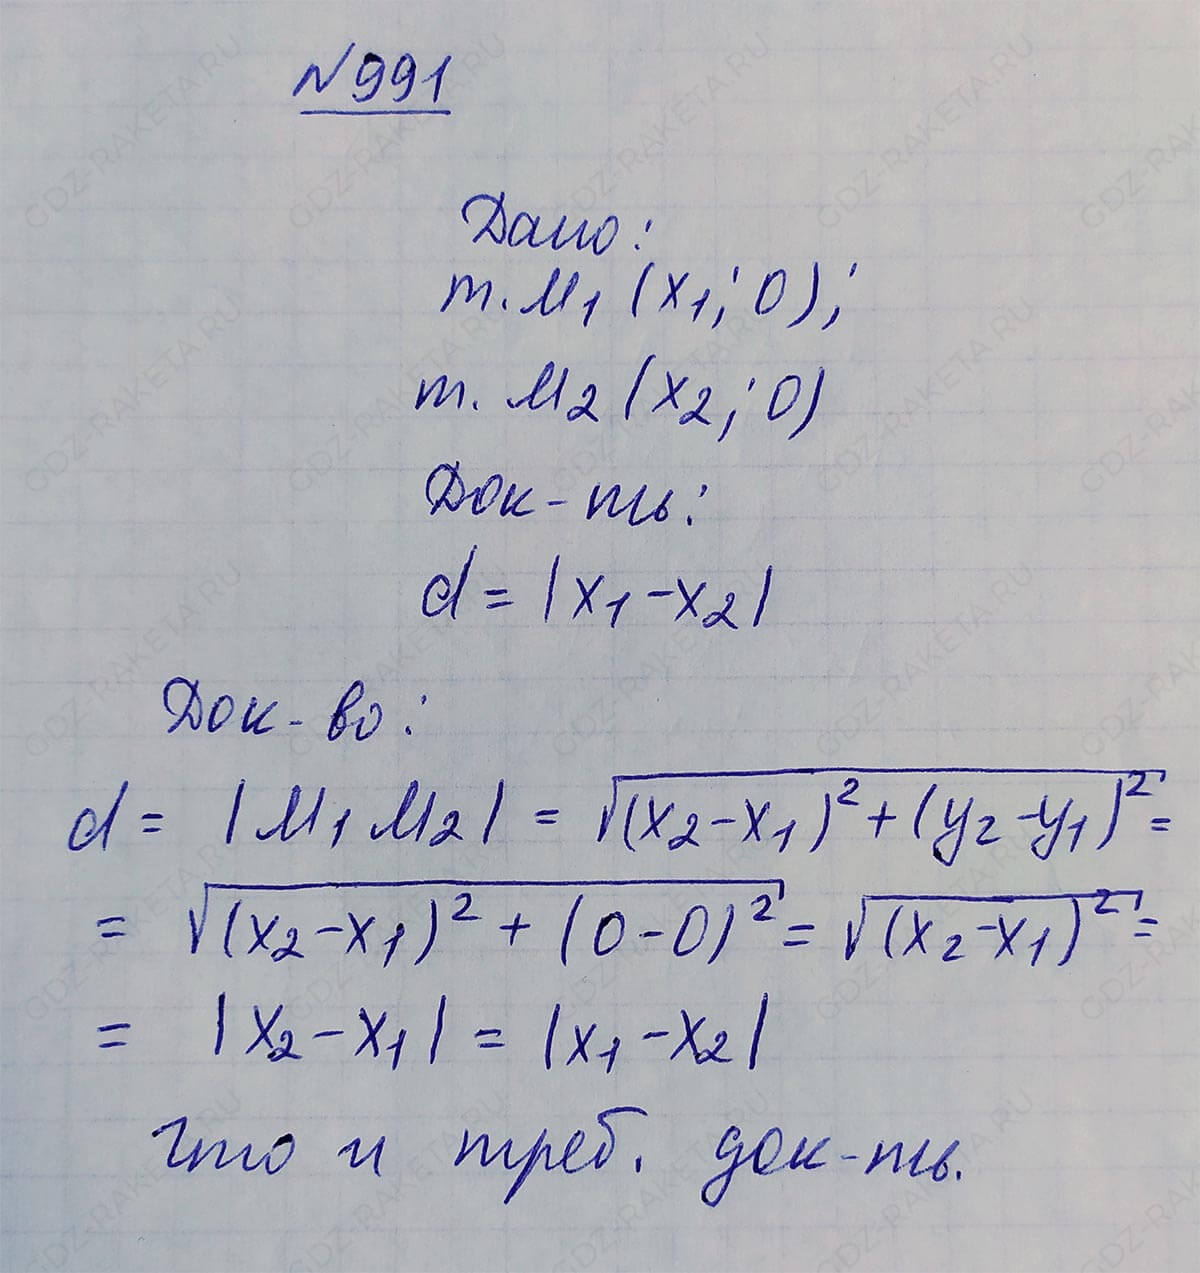 №991
Дано:
т. M₁ (x₁; 0);
т. M₂ (x₂; 0)
Док-ть:
d = |x₁ - x₂|
Док-во:
d = |M₁M₂| = √((x₂-x₁)² + (y₂-y₁)²) =
= √((x₂-x₁)² + (0-0)²) = √((x₂-x₁)²) =
= |x₂-x₁| = |x₁-x₂|
что и треб. док-ть.
GDZ-RAKETA.RU